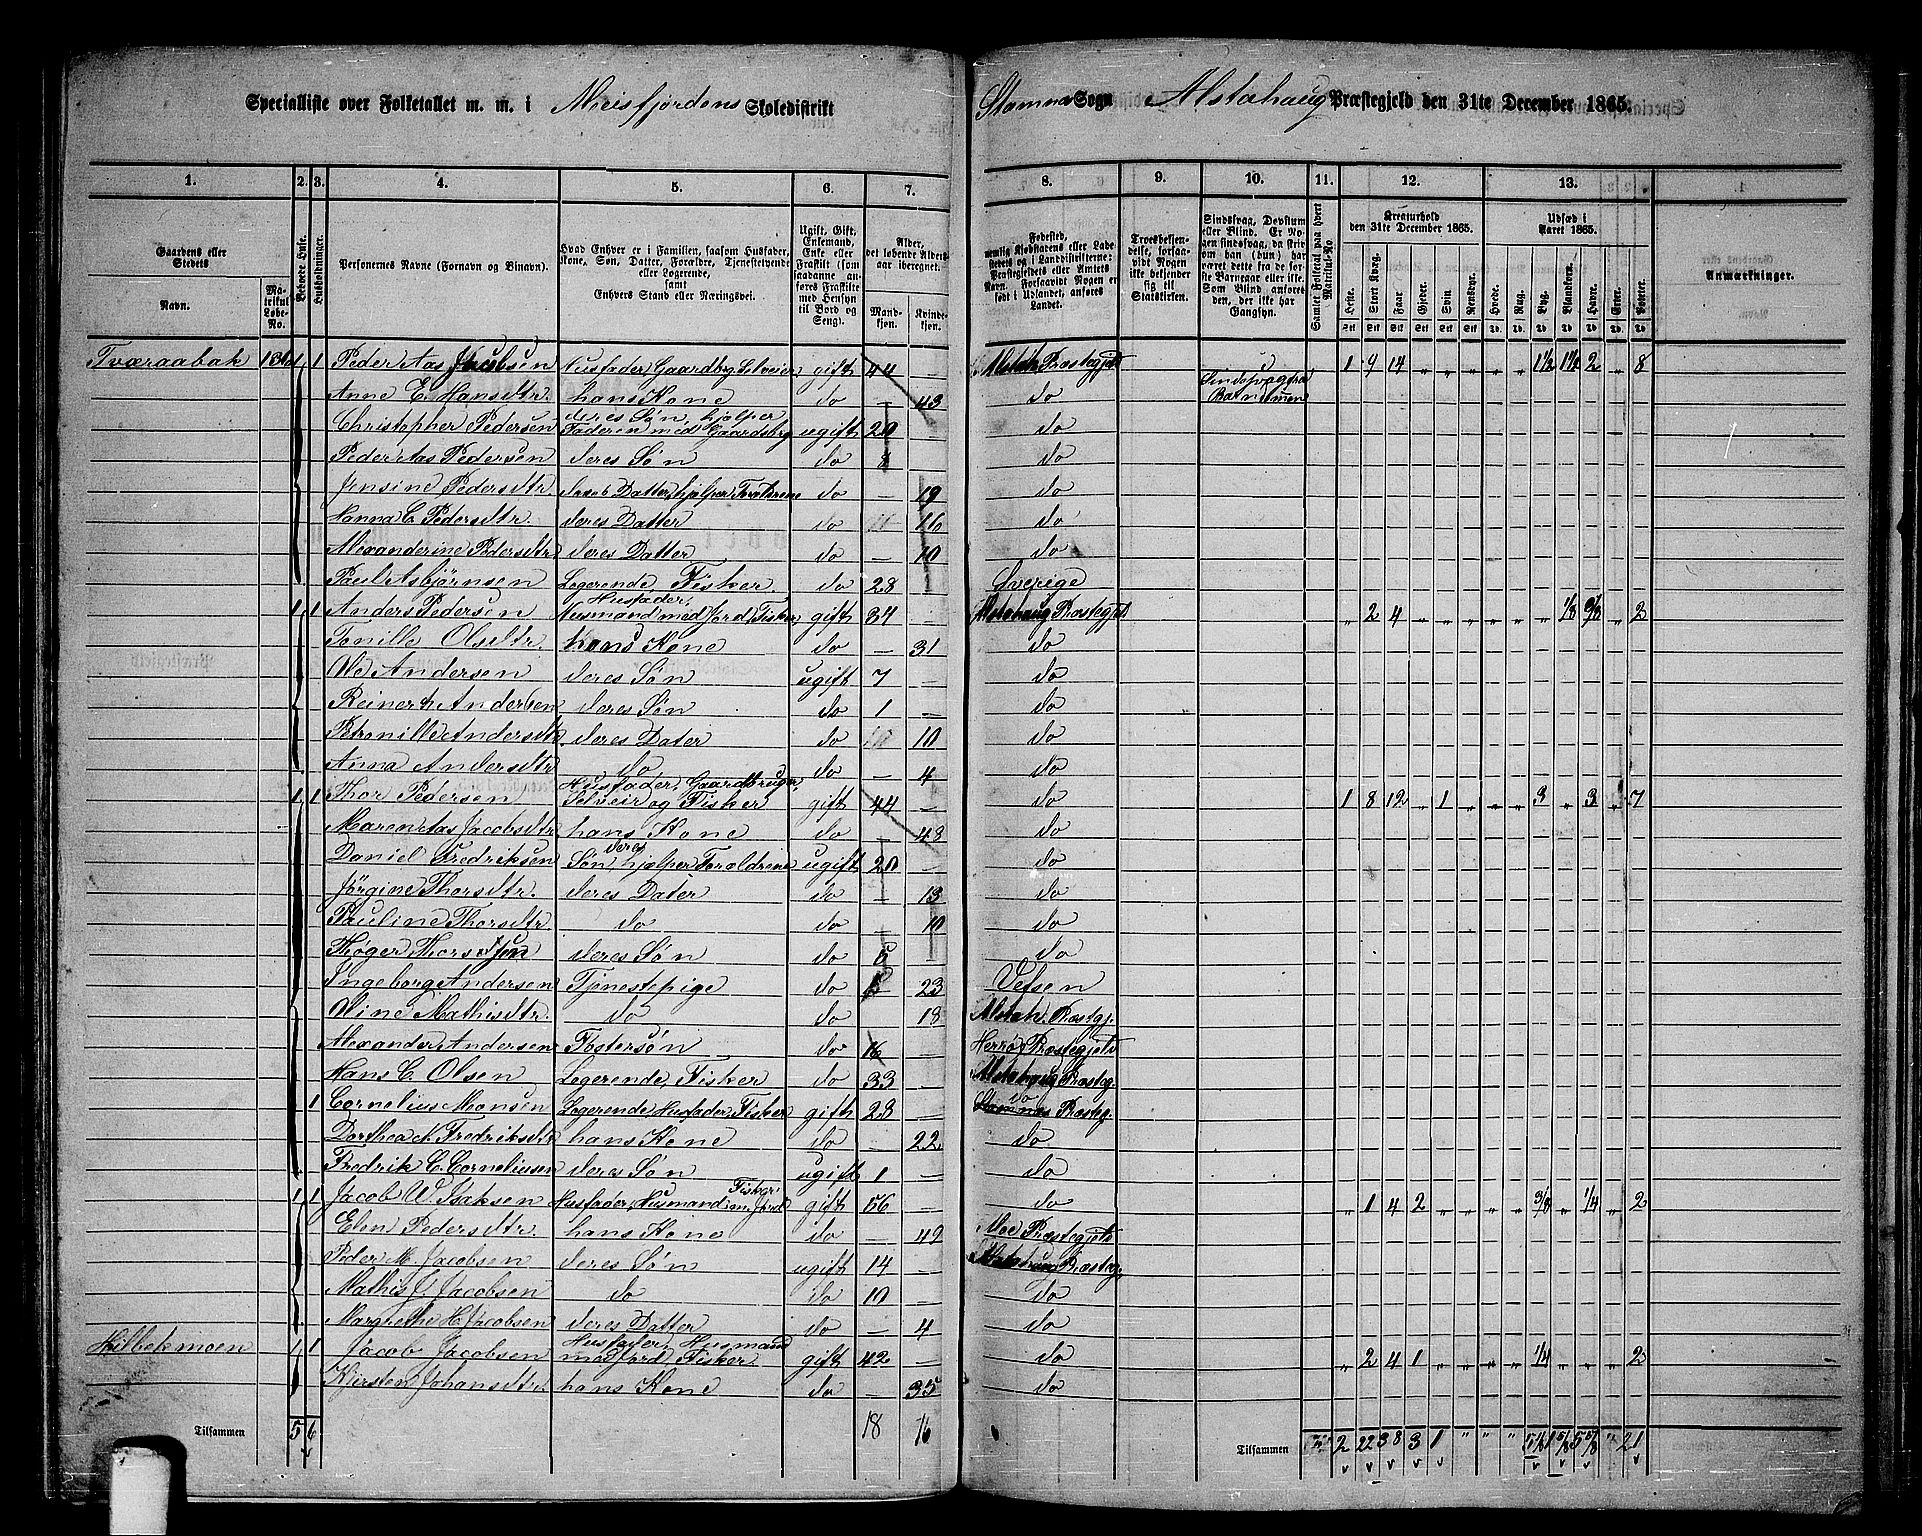 Specialliste over Folketallet m. m. i Meisfjordens Skoledistrikt Stamnæs Sogn Alstahaug Præstegjeld den 31te December 1865.
1. 2. 3. 4. 5. 6. 7. 8. 9. 10. 11. 12. 13.
Gaardens eller Stedets Navn. Matrikul Løbe-No. Beboede Huse. Husholdninger. Personernes Navne (Fornavn og Tilnavn).
Hvad Enhver er i Familien, saasom Husfader, Kone, Søn, Datter, Forældre, Tjenestetyende eller Logerende, samt Enhvers Stand eller Næringsvei.
Ugift, Gift, Enkemand, Enke eller Fraskilt (som saadanne anføres Fraskilte med Hensyn til Bord og Seng).
Alder, det løbende Alders-aar iberegnet. Mandkjøn. Kvindekjøn.
Troesbekjendelse, forsaavidt Nogen ikke bekjender sig til Statskirken.
Samlet Folketal paa hvert Matrikul-No
Kreaturhold den 31te December 1865. Heste. Stort Kvæg. Faar. Gjeder. Svin. Rensdyr.
Udsæd i Aaret 1865. Hvede. Rug. Byg. Blandkorn. Havre. Erter. Poteter.
Anmærkninger.
Tværaabak 1 1 Peder Aas Jacobsen Husfader Gaardbr. Selveier gift 44 Alstah. Præstegjeld 1 9 14 „ „ „ „ „ 1½ 1½ 2 „ 8
Anne E. Hansdtr. hans Kone do — 43 do Sindssvag fra
Christopher Pedersen deres Søn hjælper Faderen med Gaardsbrg ugift 20 — do
Peder Aas Pedersen deres Søn do 8 — do
Jensine Pedersdtr. Datter, hjælper Forældrene do — 19 do
Hanna C. Pedersdtr. deres Datter do 16 do
Alexanderine Pedersdtr deres Datter do — 10 do
Paul Asbjørnsen Logerende Fisker do 28 — Sverige
1 1 Anders Pedersen Husfader, Husmand med Jord, Fisker gift 34 — Alstahaug Præstegjeld „ 2 4 „ „ „ „ „ „ 1/8 3/8 „ 2
Tonille Olsdtr. hans Kone do — 31 do
Ole Andersen deres Søn ugift 7 — do
Reinert Andersen deres Søn do 1 — do
Petronille Andersdtr. deres Dater do 10 do
Anna Andersdtr do do — 4 do
1 1 Thor Pedersen Husfader, Gaardbruger, Selveir og Fisker gift 44 — do 1 8 12 „ 1 „ „ „ 3 „ 3 „ 7
Maren Aas Jacobsdtr. hans Kone do — 48 do
Daniel Fredriksen deres Søn, hjælper Forældrene ugift 20 — do
Jørgine Thorsdtr. deres Dater do — 13 do
Pauline Thorsdtr. do do — 10 do
Høger Thorssøn deres Søn do 5 — do
Ingeborg Andersen Tjenestepige do 23 Vefsen
Oline Mathisdtr. do do — 18 Alstah. Præstgj.
Alexander Andersen Fostersøn do 16 — Herrø Præstegjeld
Hans C. Olsen Logerende, Fisker do 33 — Alstahaug Præsteg.
1 Cornelius Monsen Logerende, Husfader, Fisker gift 28 — do Stamnæs Præsteg.
Dorthea N. Fredriksdtr hans Kone do — 22 do
Fredrik C. Corneliussen deres Søn ugift 1 — do
1 1 Jacob W. Isaksen Husfader, Husmand m. Jord Fisker gift 56 — do „ 1 4 2 „ „ „ „ 3/8 „ 1/4 „ 2
Elen Pedersdtr. hans Kone do — 49 Moe Præstegjeld
Peder M. Jacobsen deres Søn ugift 14 — Alstahaug Præsteg.
Mathis J. Jacobsen do do 10 — do
Margrethe H. Jacobsen deres Datter do — 4 do
Hilbekmoen 1 1 Jacob Jacobsen Husfader, Husmand med Jord, Fisker gift 42 — do „ 2 4 1 „ „ „ „ 1/4 „ „ „ 2
Kjersten Johansdtr. hans Kone do — 35 do
Tilsammen 5 6 18 16 Tilsammen 2 22 38 3 1 „ „ „ 21